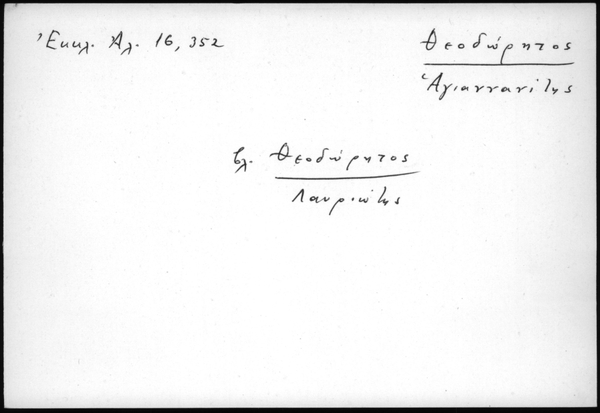 Ἐκκλ. Ἀλ. 16, 352
Θεοδώρητος
Ἁγιαννανίτης
βλ. Θεοδώρητος
Λαυριώτης